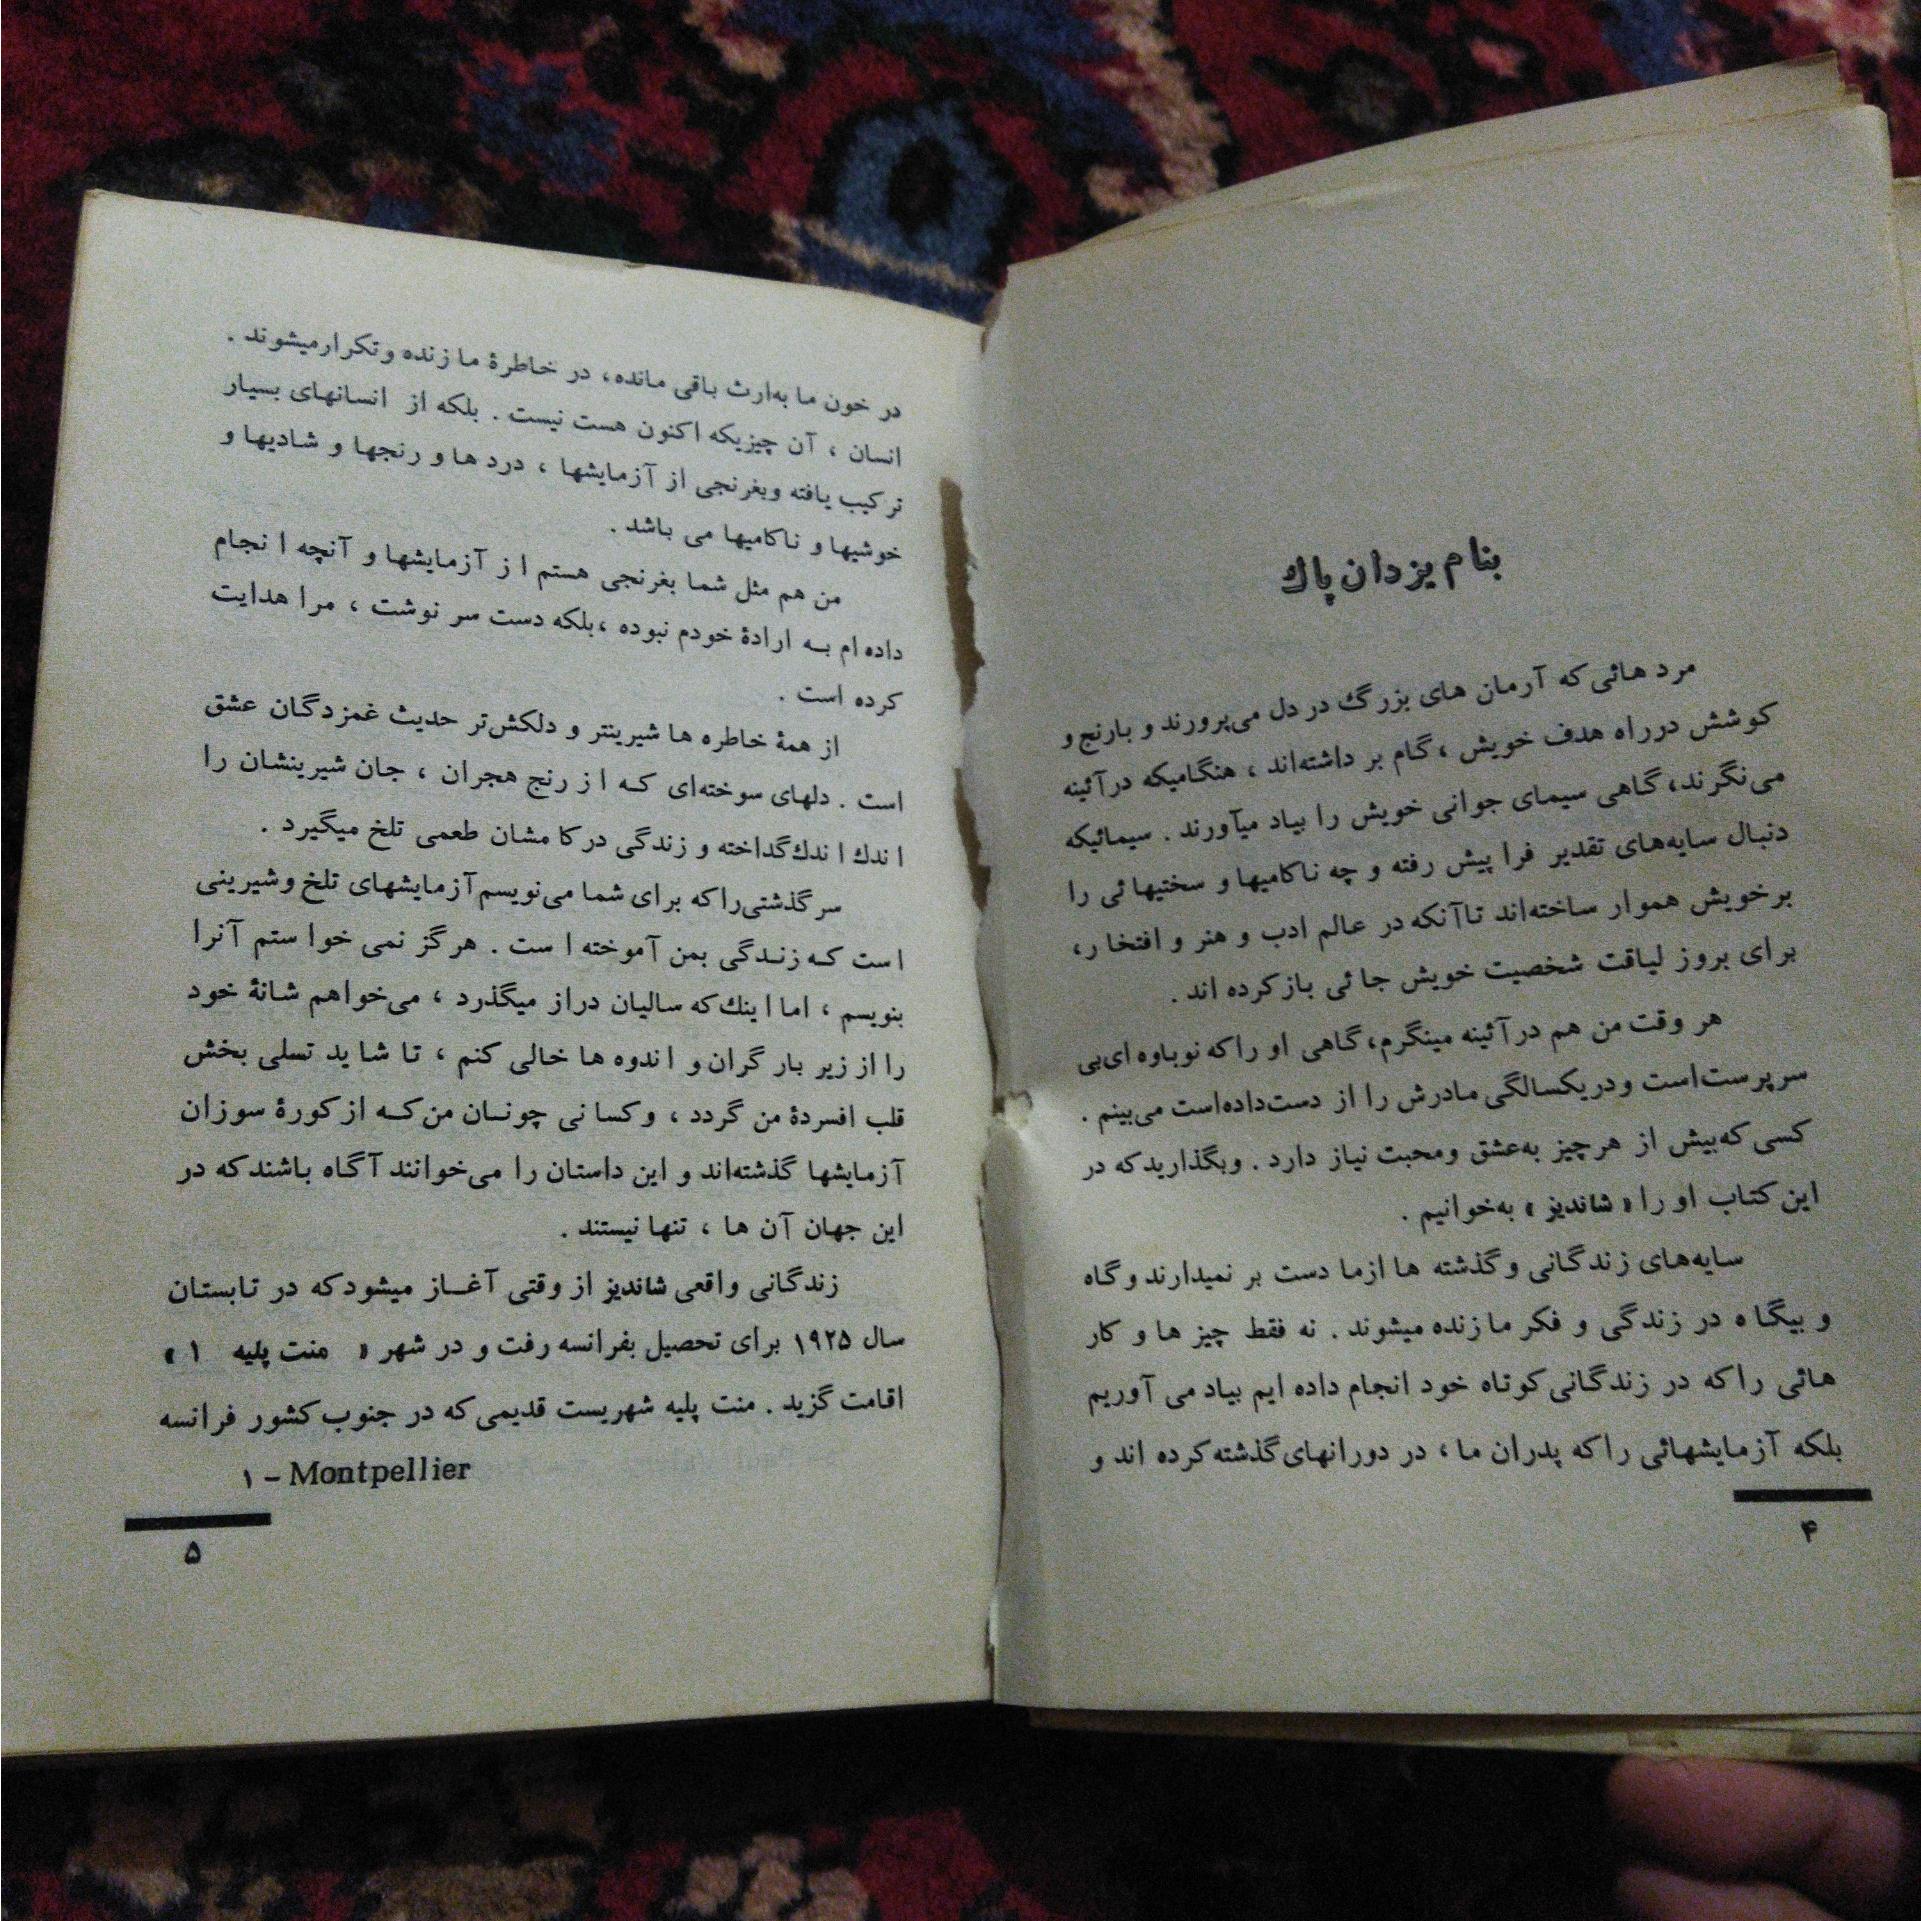 بنام یزدان پاک
مرد هائی که آرمان های بزرگ در دل می‌پرورند و بارنج و
کوشش درراه هدف خویش ، گام بر داشته‌اند ، هنگامیکه درآئینه
می‌نگرند، گاهی سیمای جوانی خویش را بیاد میآورند . سیمائیکه
دنبال سایه‌های تقدیر فرا پیش رفته و چه ناکامیها و سختیهائی را
برخویش هموار ساخته‌اند تاآنکه در عالم ادب و هنر و افتخار،
برای بروز لیاقت شخصیت خویش جائی بازکرده اند .
هر وقت من هم درآئینه مینگرم، گاهی او راکه نوباوه ای‌بی
سرپرست‌است و دریکسالگی مادرش را از دست‌داده‌است می‌بینم .
کسی که‌بیش از هرچیز به‌عشق ومحبت نیاز دارد . وبگذارید که در
این کتاب او را « شاندیز » به‌خوانیم .
سایه‌های زندگانی و گذشته ها ازما دست بر نمیدارند و گاه
و بیگاه در زندگی و فکر ما زنده میشوند . نه فقط چیز ها و کار
هائی راکه در زندگانی کوتاه خود انجام داده ایم بیاد می آوریم
بلکه آزمایشهائی راکه پدران ما ، در دورانهای گذشته کرده اند و
۴
در خون ما به‌ارث باقی مانده، در خاطرهٔ ما زنده وتکرارمیشوند .
انسان ، آن چیزیکه اکنون هست نیست . بلکه از انسانهای بسیار
ترکیب یافته وبغرنجی از آزمایشها ، درد ها و رنجها و شادیها و
خوشیها و ناکامیها می باشد .
من هم مثل شما بغرنجی هستم از آزمایشها و آنچه انجام
داده ام به ارادهٔ خودم نبوده ،بلکه دست سر نوشت ، مرا هدایت
کرده است .
از همهٔ خاطره ها شیرینتر و دلکش‌تر حدیث غمزدگان عشق
است . دلهای سوخته‌ای که از رنج هجران ، جان شیرینشان را
اندک اندک گداخته و زندگی درکامشان طعمی تلخ میگیرد .
سرگذشتی‌راکه برای شما می‌نویسم آزمایشهای تلخ وشیرینی
است که زندگی بمن آموخته است . هرگز نمی خواستم آنرا
بنویسم ، اما اینک‌که سالیان دراز میگذرد ، می‌خواهم شانهٔ خود
را از زیر بار گران و اندوه ها خالی کنم ، تا شاید تسلی بخش
قلب افسردهٔ من گردد ، وکسانی چونان من‌که ازکورهٔ سوزان
آزمایشها گذشته‌اند و این داستان را می‌خوانند آگاه باشندکه در
این جهان آن ها ، تنها نیستند .
زندگانی واقعی شاندیز از وقتی آغاز میشودکه در تابستان
سال ۱۹۲۵ برای تحصیل بفرانسه رفت و در شهر « منت پلیه ۱ »
اقامت گزید . منت پلیه شهریست قدیمی که در جنوب کشور فرانسه
۱ – Montpellier
۵